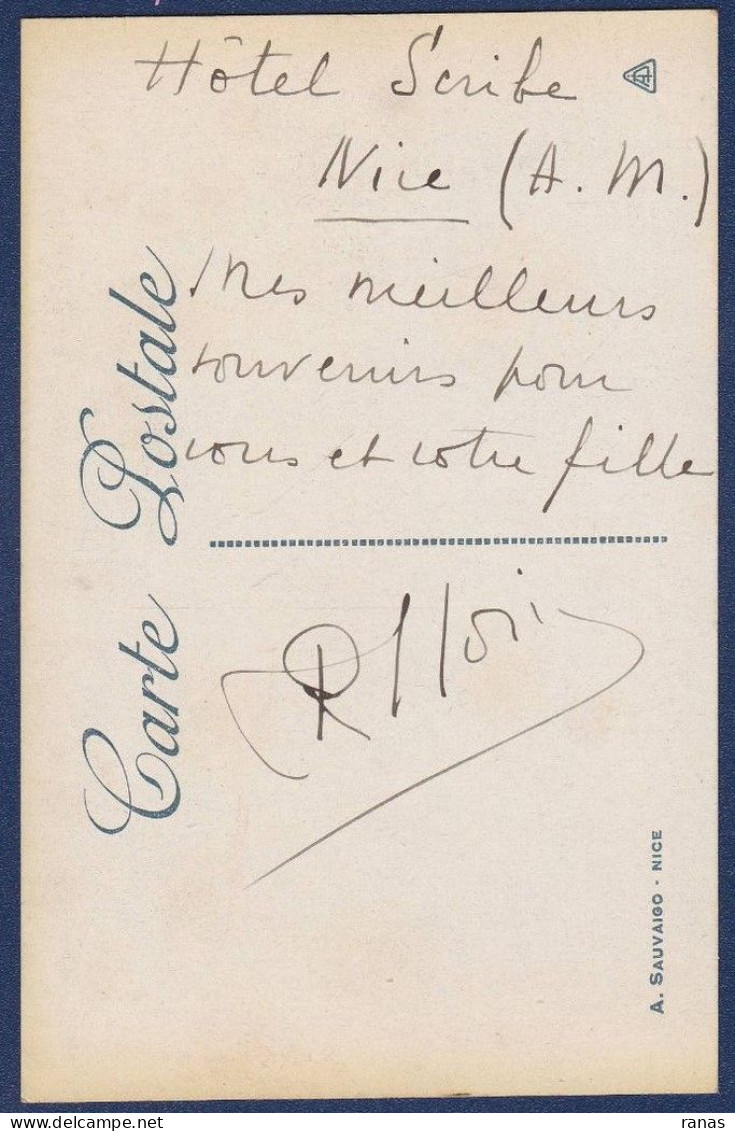 Hôtel Scribe
Nice (A. M.)
Mes meilleurs
souvenirs pour
vous et votre fille
Carte Postale
A. SAUVAIGO - NICE
ranas